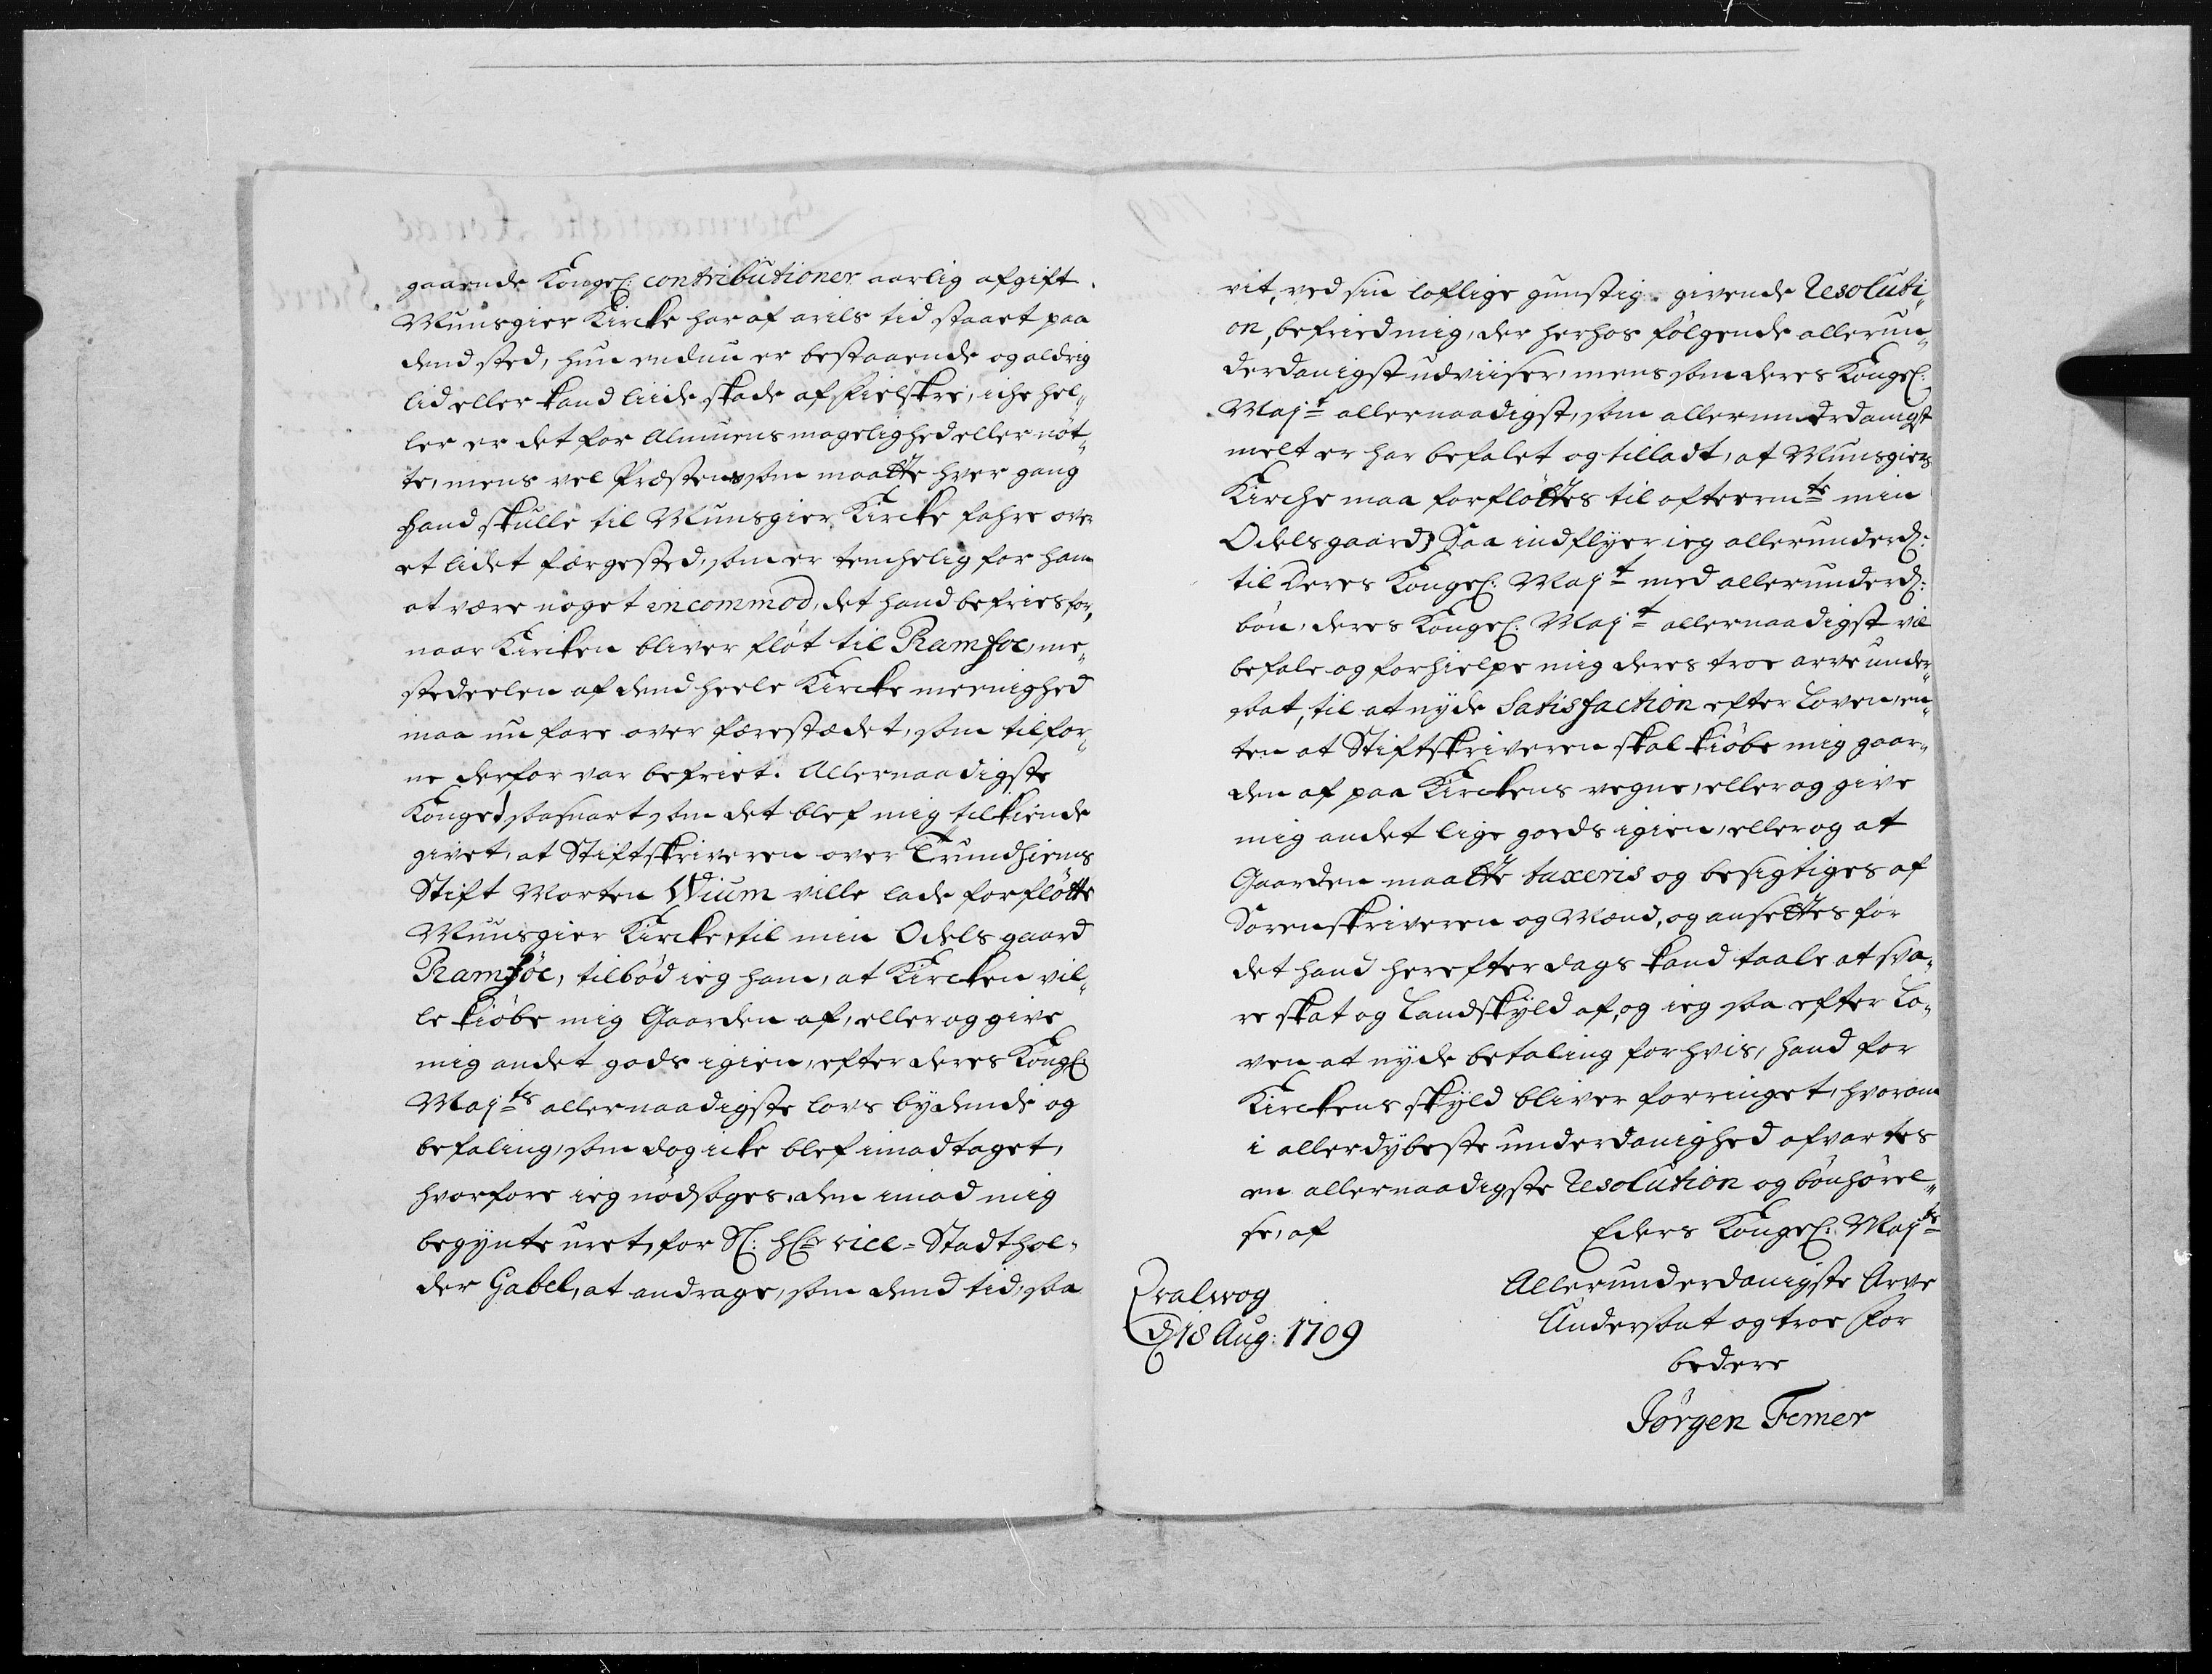 gaaende Kongel: contributioner aarlig afgift.
Munsgier Kircke har af arils tid staaet paa
dend sted, hun endnu er bestaaende og aldrig
lid eller kand liide skade af Fielskre, iche hel„
ler er det for Almuens magelighed eller nøt„
te, mens vel Præsten, som maatte hver gang
hand skulle til Munsgier Kircke fahre over
et lidet færgested, som er temhelig for ham
at være noget incommod, det hand befries for,
naar Kircken bliver fløt til Ramsøe, me„
stedeelen af dend heele Kircke meenighed
maa nu fare over færestædet, som tilfor„
ne derfor var befriet. Allernaadigste
Konge! saasnart som det blef mig tilkiende
givet, at Stiftskriveren over Trundhiems
Stift Morten Wium ville lade forfløtte
Munsgier Kircke, til min Odels gaard
Ramsøe, tilbød ieg ham, at Kircken vil„
le kiøbe mig Gaarden af, eller og give
mig andet gods igien, efter deres Kongl:
Majts allernaadigste lovs bydende og
befaling, som dog icke blef imodtaget,
hvorfore ieg nødsages, den imod mig
begynte uret, for Sl: hr: vice-Stadthol„
der Gabel, at andrage, som dend tid, saa
vit, ved sin loflige gunstig givende Resoluti„
on, befried mig, der herhos følgende allerun„
derdanigst udviiser, mens som deres Kongel:
Majt allernaadigst, som allerunderdanigst
melt er har befalet og tilladt, at Munsgiers
Kirche maa forfløttes til ofteermte min
Odelsgaard; Saa indflyer ieg allerunderd:
til Deres Kongel: Majt med allerunderd:
bøn, deres Kongel: Majt allernaadigst vil
befale og forhielpe mig deres troe arve under„
saat, til at nyde Satisfaction efter Loven, en„
ten at Stiftskriveren skal kiøbe mig gaar„
den af paa Kirckens vegne, eller og give
mig andet lige goeds igien, eller og at
Gaarden maatte taxeris og besigtiges af
Sorenskriveren og Mænd, og ansettes for
det hand herefter dags kand taale at sva„
re skat og Landskyld af, og ieg saa efter Lo„
ven at nyde betaling for hvis, hand for
Kirckens skyld bliver forringet, hvorom
i allerdybeste underdanighed afvartes
en allernaadigste Resolution og bønhørel„
se, af
Eders Kongel: Majts
Allerunderdanigste Arve
Undersaat og troe for
bedere
Jørgen Femer
Qvalwog
d: 18 Aug: 1709